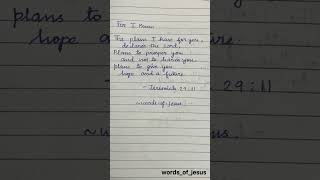 For I know
The plans I have for you,
declares the Lord,
Plans to prosper you
and not to harm you
plans to give you
hope and a future
- Jeremiah 29:11
~words_of_jesus
words_of_jesus